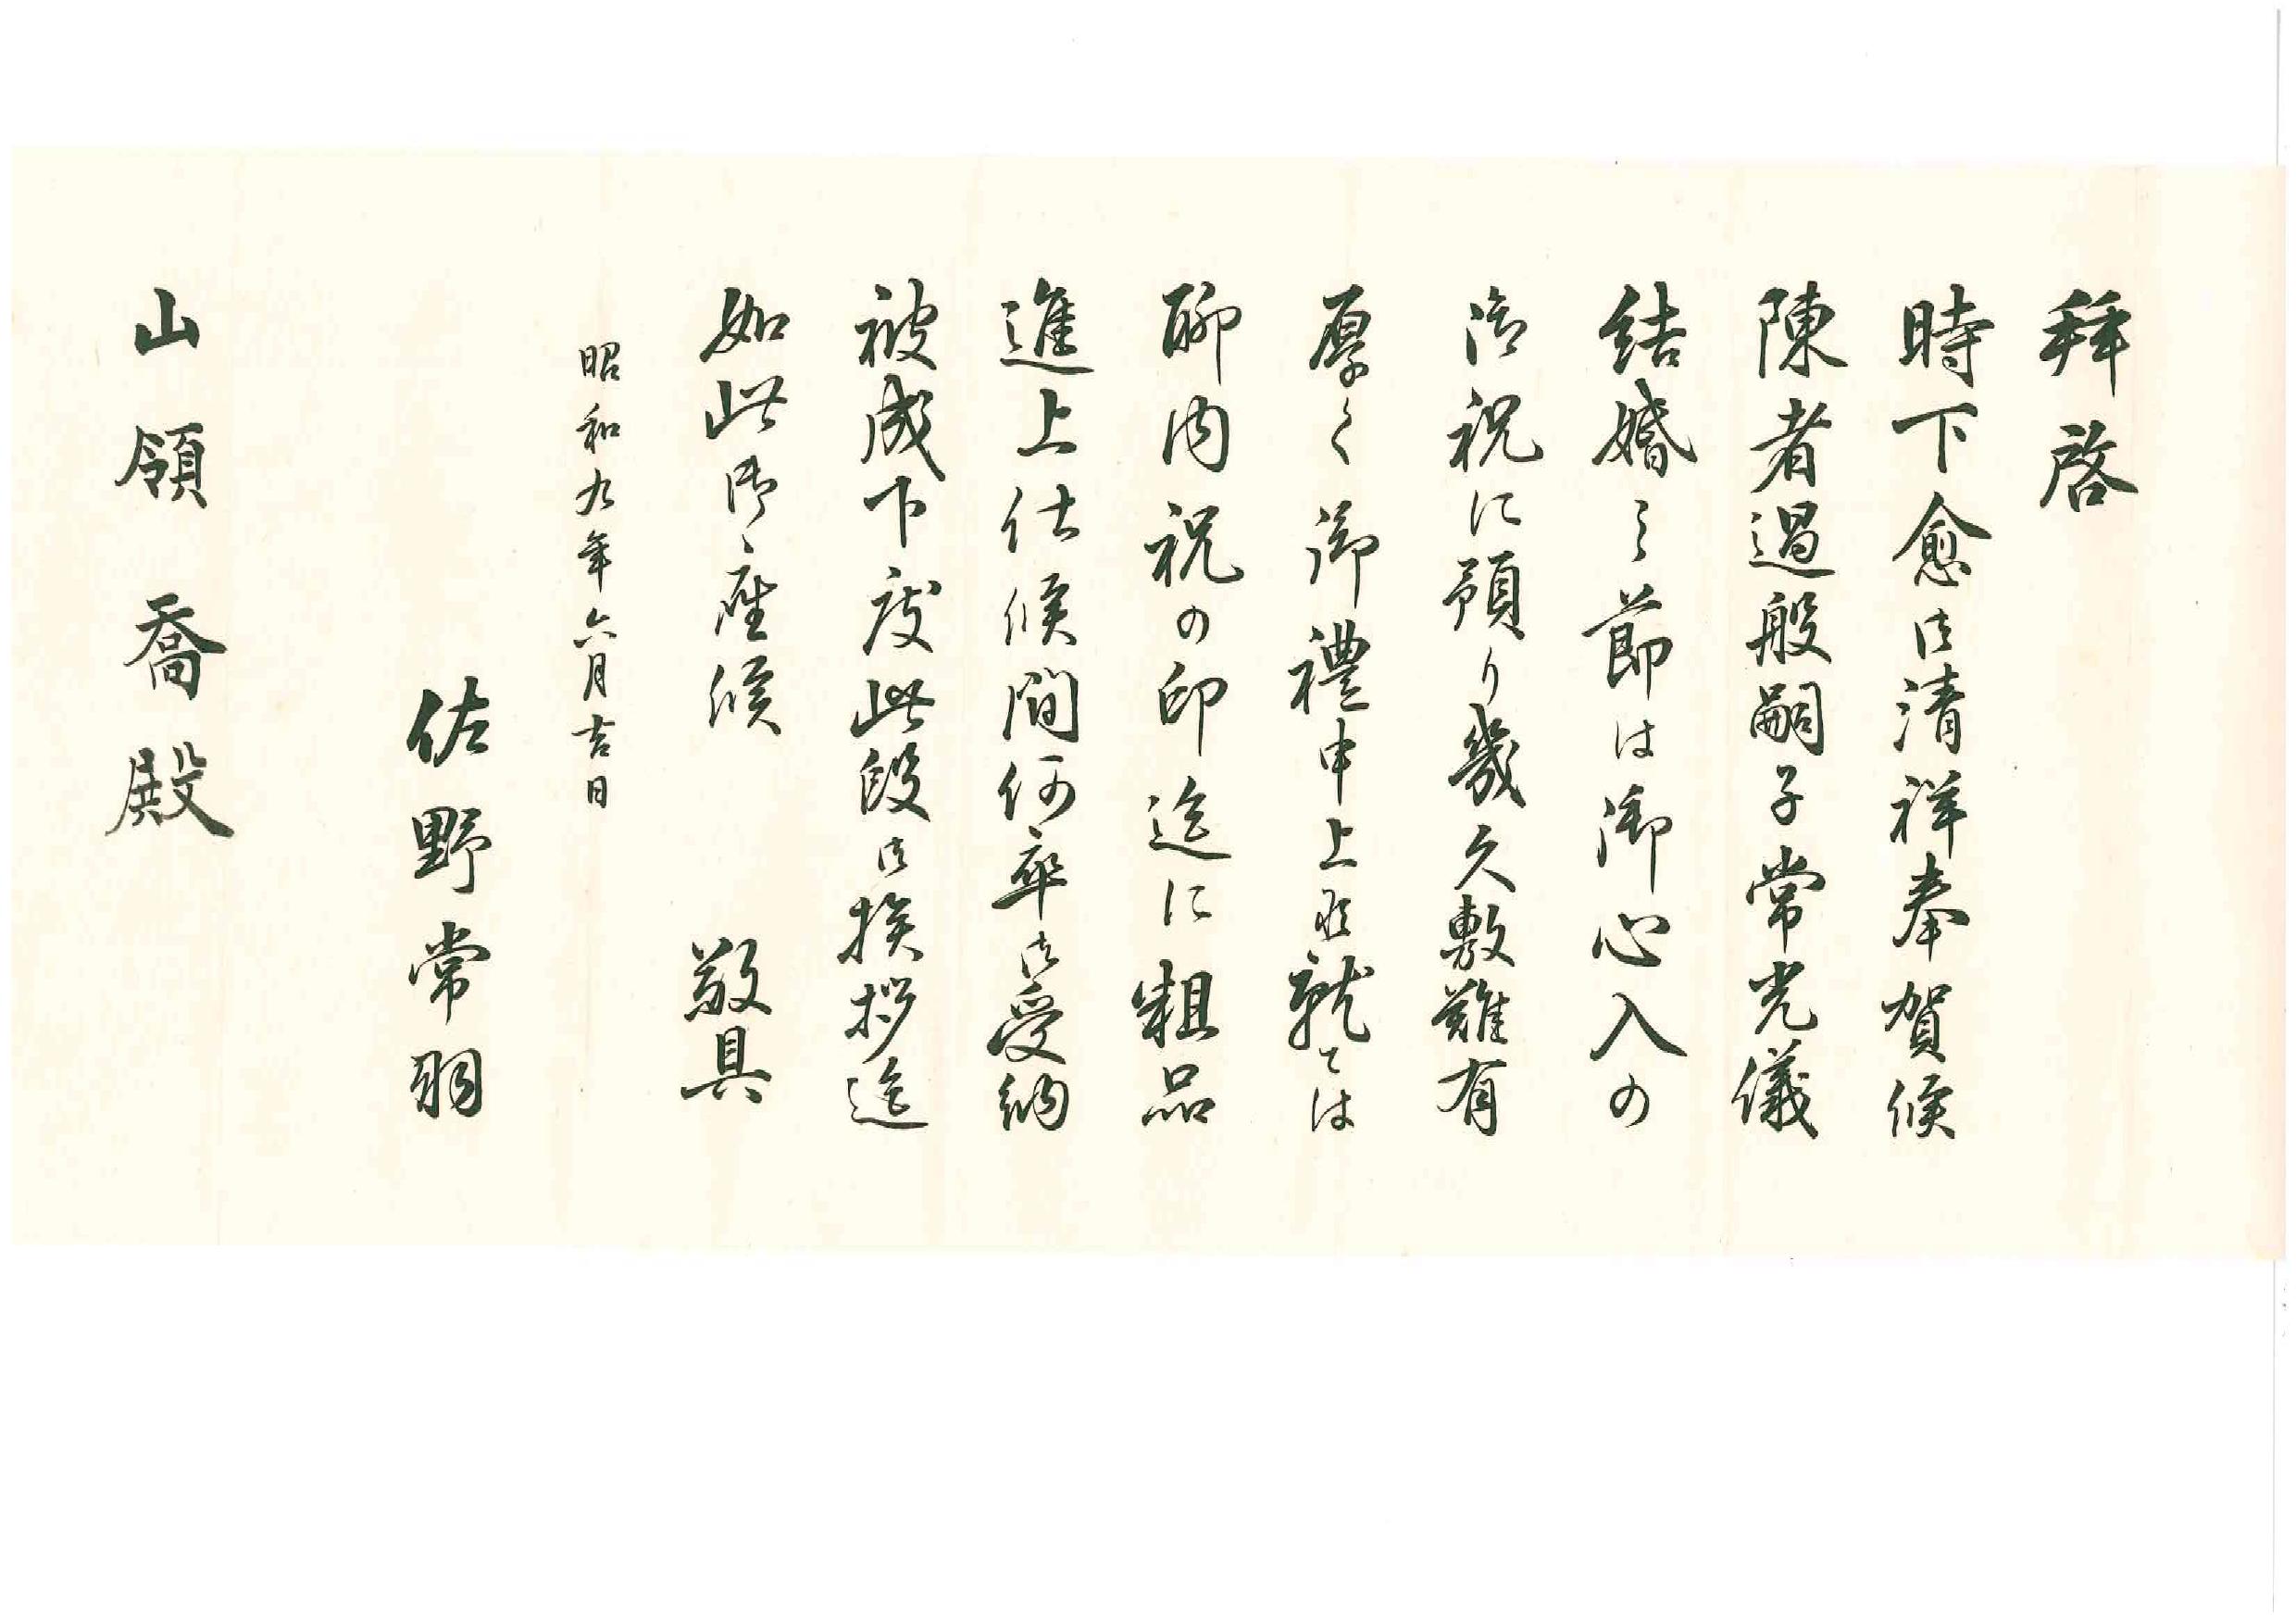 拜啓
時下愈御清祥奉賀候
陳者過般嗣子常光儀
結婚之節は御心入の
御祝に預り幾久敷難有
厚く御禮申上候就ては
聊内祝の印迄に粗品
進上仕候間何卒御受納
被成下度此段御挨拶迄
如此御座候 敬具
昭和九年六月吉日
佐野常羽
山領喬殿